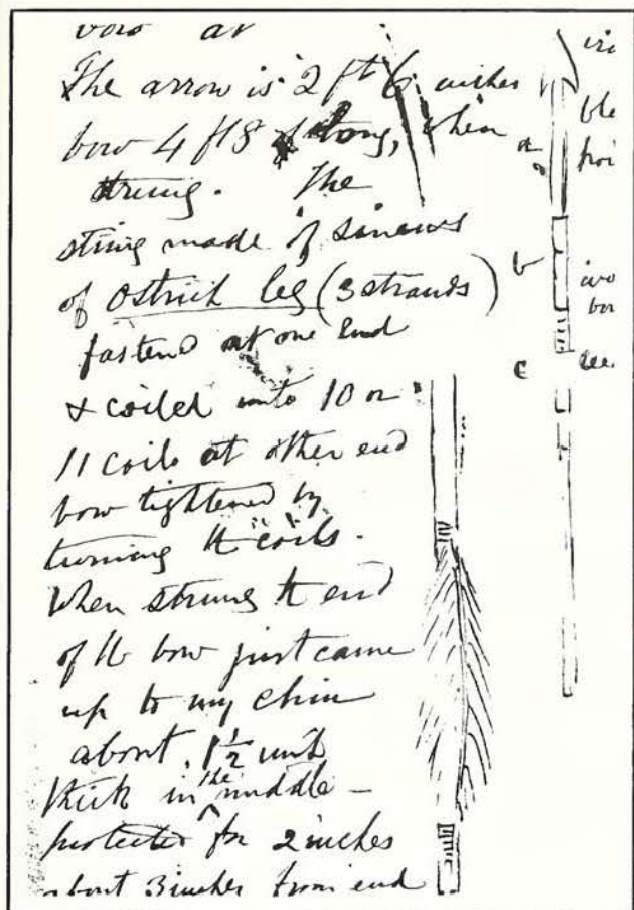 The arrow is 2 ft 6 inches
bow 4 ft 8 long, when
strung. The
string made of sinews
of Ostrich leg (3 strands)
fastened at one end
& coiled into 10 or
11 coils at other end
bow tightened by
turning the coils.
When strung the end
of the bow just came
up to my chin
about 1½ inch
thick in the middle –
protected for 2 inches
about 3 inches from end
a
b
c
iro
ble
poi
ivo
bon